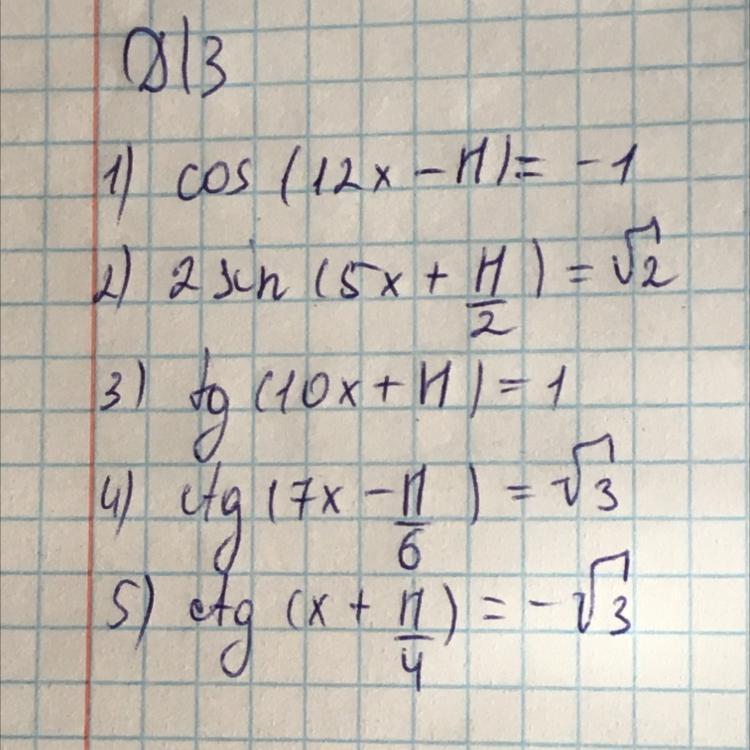 Д/З
1) cos (12x - П) = -1
2) 2 sin (5x + П/2) = √2
3) tg (10x + П) = 1
4) ctg (7x - П/6) = √3
5) ctg (x + П/4) = -√3